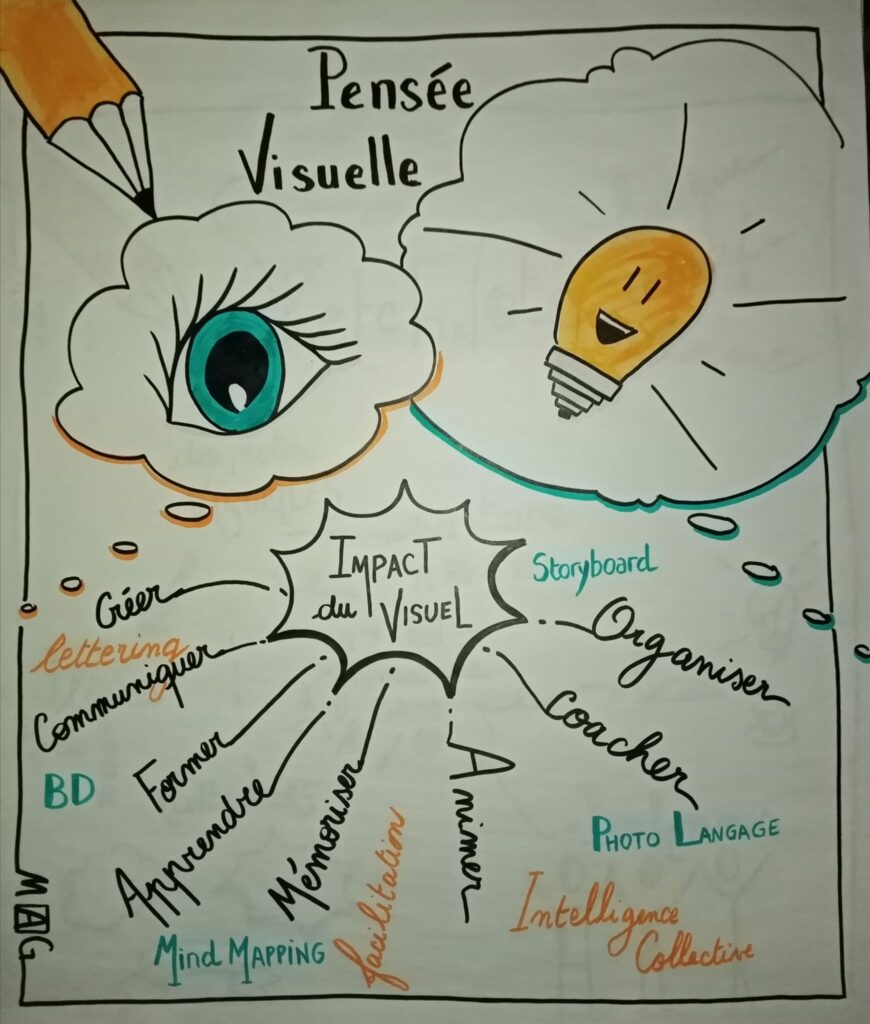 Pensée
Visuelle
IMPACT
du VISUEL
Créer
lettering
Communiquer
BD
Former
Apprendre
Mind MAPPING
Mémoriser
facilitation
Animer
Storyboard
Organiser
Coacher
PHOTO LANGAGE
Intelligence
Collective
MAG